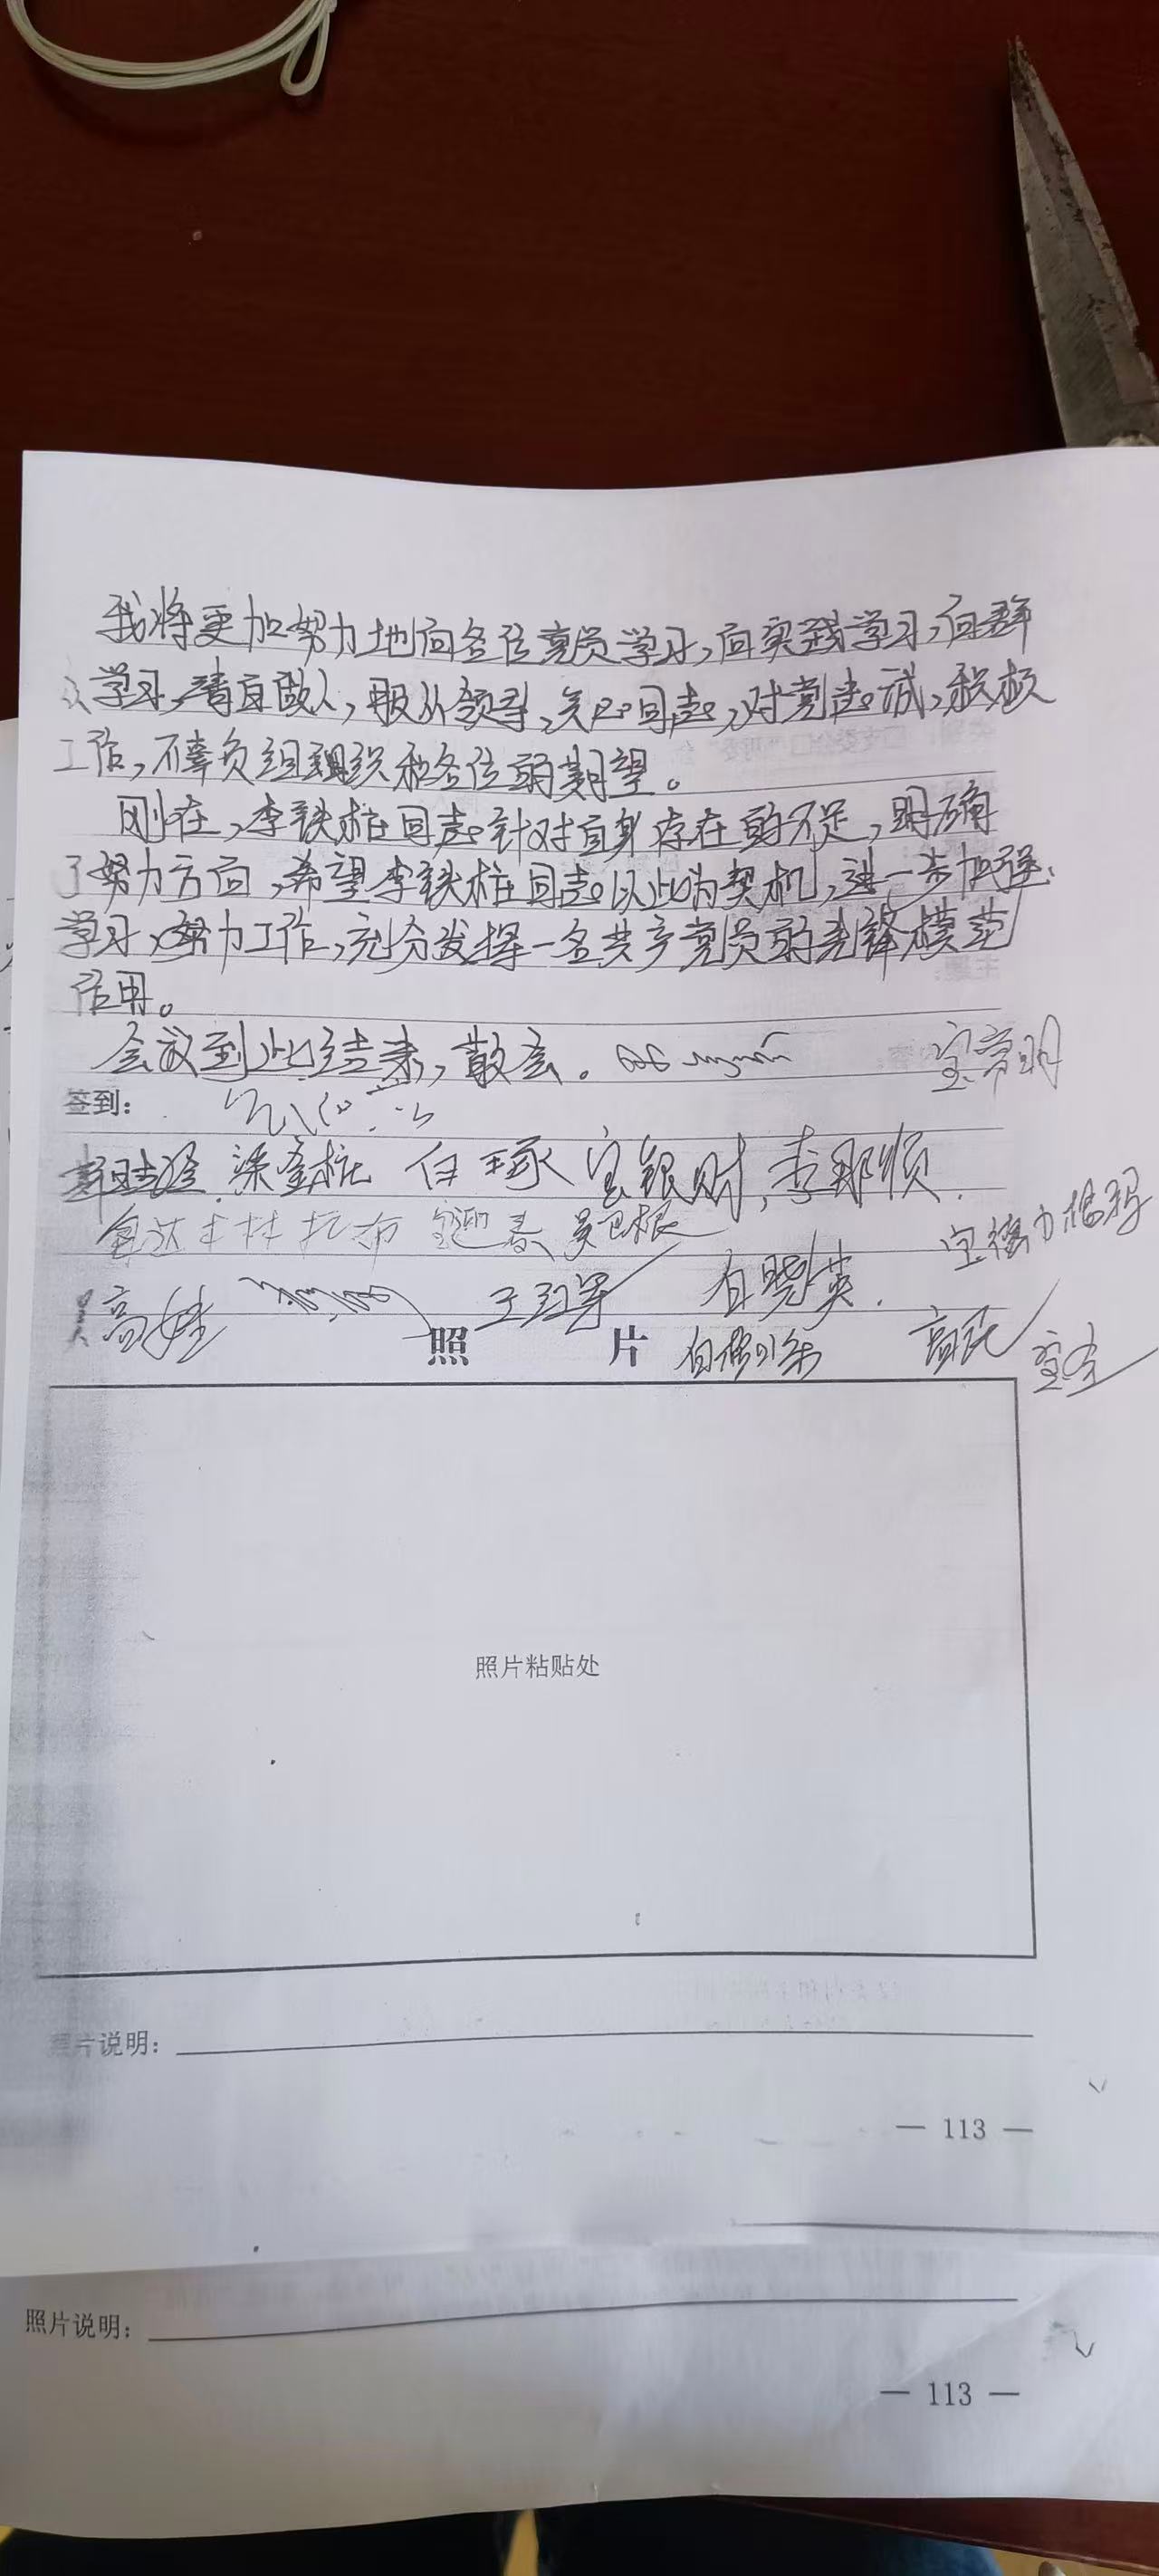 我将更加努力地向各位党员学习,向实践学习,向群
众学习,清直做人,服从领导,关心同志,对党忠诚,积极
工作,不辜负组织和各位的期望。
刚在,李铁柱同志针对自身存在的不足,明确
了努力方向,希望李铁柱同志以此为契机,进一步加强
学习,努力工作,充分发挥一名共产党员的先锋模范
作用。
会议到此结束,散会。
宝常明
签到:
梁金柱 白玉琢 宝银财,李那顺.
迎春
高娃 白晓英.
照 片
照片粘贴处
照片说明:
— 113 —
照片说明:
— 113 —